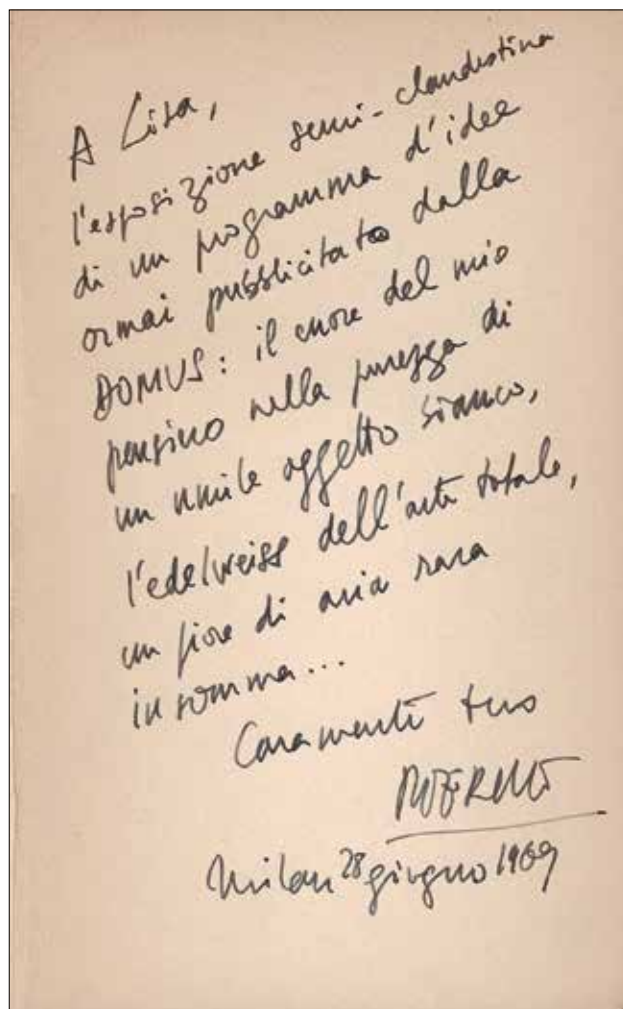 A Lisa,
l'esposizione semi-clandestina
di un programma d'idee
ormai pubblicitato dalla
DOMUS: il cuore del mio
pensino nella purezza di
un umile oggetto bianco,
l'edelweiss dell'arte totale,
un fiore di aria rara
in somma...
Caramente tuo
Milan 28 giugno 1969